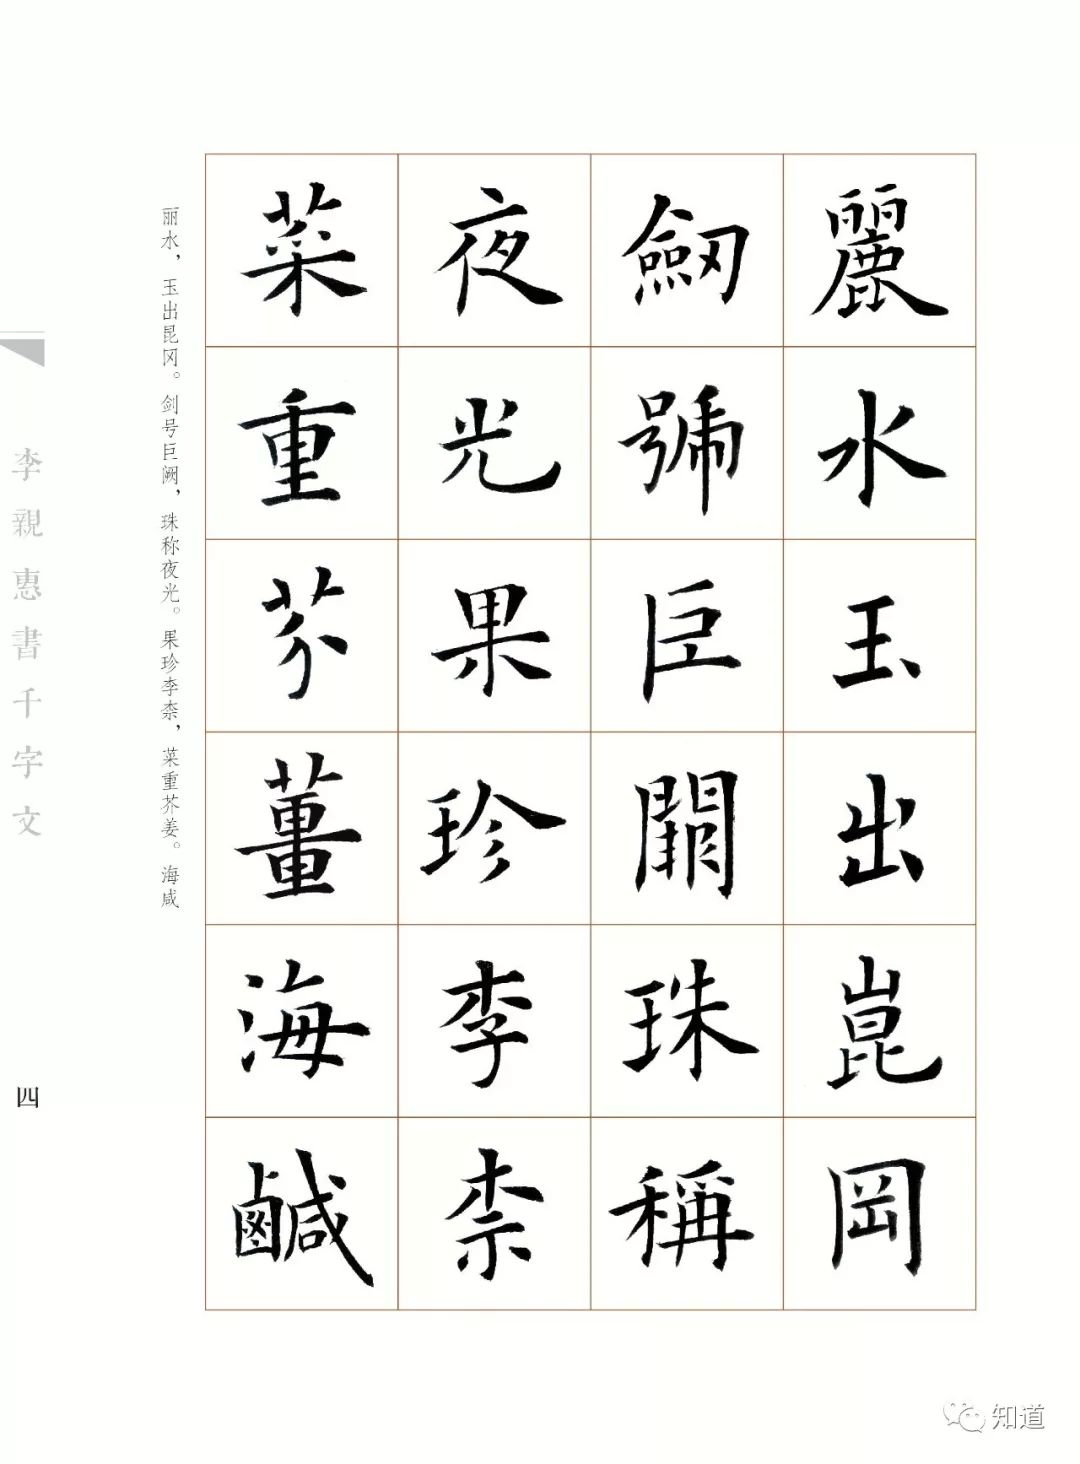 麗水玉出崑岡
劒號巨闕珠稱
夜光果珍李柰
菜重芥薑海鹹
丽水，玉出昆冈。剑号巨阙，珠称夜光。果珍李柰，菜重芥姜。海咸
李親惠書千字文
四
知道